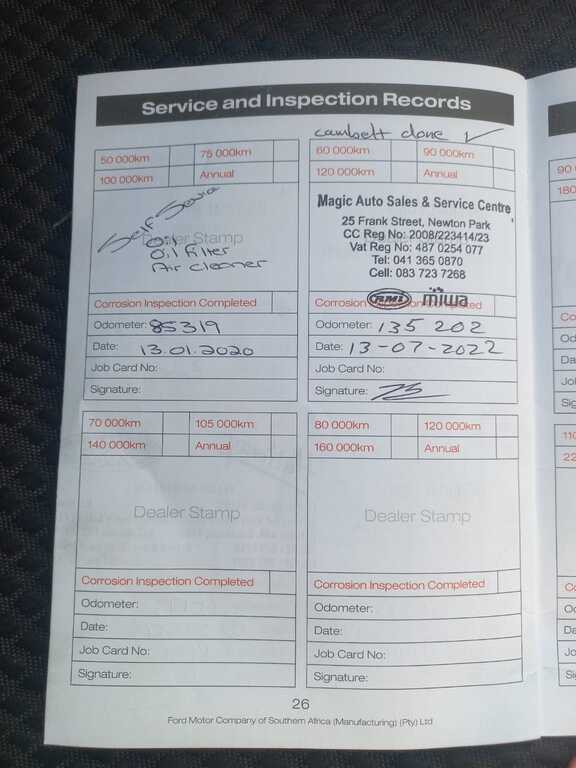 Service and Inspection Records
cambelt done ✓
50 000km 75 000km
100 000km Annual
Self Service
Dealer Stamp
Oil
Oil Filter
Air Cleaner
Corrosion Inspection Completed
Odometer: 85319
Date: 13.01.2020
Job Card No:
Signature:
60 000km 90 000km
120 000km Annual
Magic Auto Sales & Service Centre
25 Frank Street, Newton Park
CC Reg No: 2008/223414/23
Vat Reg No: 487 0254 077
Tel: 041 365 0870
Cell: 083 723 7268
RMI miwa
Corrosion Inspection Completed
Odometer: 135 202
Date: 13-07-2022
Job Card No:
Signature:
70 000km 105 000km
140 000km Annual
Dealer Stamp
Corrosion Inspection Completed
Odometer:
Date:
Job Card No:
Signature:
80 000km 120 000km
160 000km Annual
Dealer Stamp
Corrosion Inspection Completed
Odometer:
Date:
Job Card No:
Signature:
26
Ford Motor Company of Southern Africa (Manufacturing) (Pty) Ltd